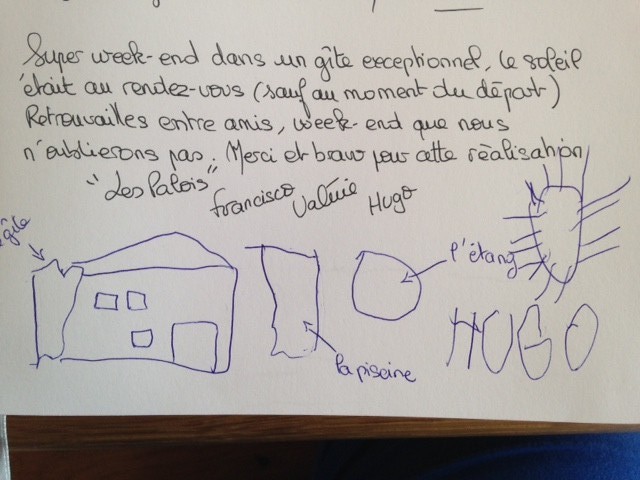 Super week-end dans un gîte exceptionnel, le soleil
était au rendez-vous (sauf au moment du départ)
Retrouvailles entre amis, week-end que nous
n'oublierons pas. Merci et bravo pour cette réalisation
"Les Palois"
Francisco Valérie Hugo
gîte
l'étang
la piscine
HUGO